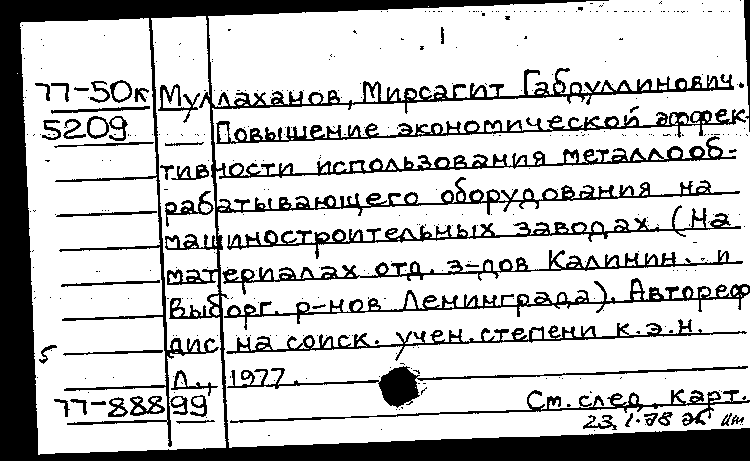 77-50к Муллаханов, Мирсагит Габдуллинович.
5209 Повышение экономической эффек-
тивности использования металлооб-
рабатывающего оборудования на
машиностроительных заводах. (На
материалах отд. з-дов Калинин. и
Выборг. р-нов Ленинграда). Автореф
дис на соиск. учен. степени к.э.н.
Л., 1977.
77-88899 См. след. карт.
23.1.78